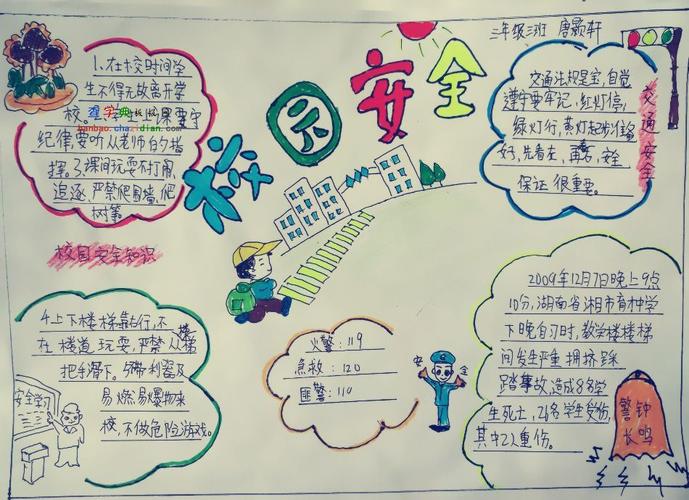 校园安全
三年级三班 唐颢轩
1、在校时间学
生不得无故离开学
校。
课要守
纪律,要听从老师的指
挥。3.课间玩耍不打闹,
追逐,严禁爬围墙、爬
树等。
查字典板报
banbao.chazidian.com
校园安全知识
4.上下楼梯靠右行,不
在楼道玩耍,严禁从楼梯
把手滑下。
带利器及
易燃易爆物来
校,不做危险游戏。
安全学习
火警:119
急救:120
匪警:110
安全
交通法规是宝,自觉
遵守要牢记,红灯停,
绿灯行,黄灯
好,先看左,再看右,安全
保证很重要。
交通安全
2009年12月7日晚上9点
10分,湖南省湘
市育才中学
下晚自习时,教学楼楼梯
间发生严重拥挤踩
踏事故,造成8名学
生死亡,26名学生受伤,
其中2人重伤。
警钟
长鸣